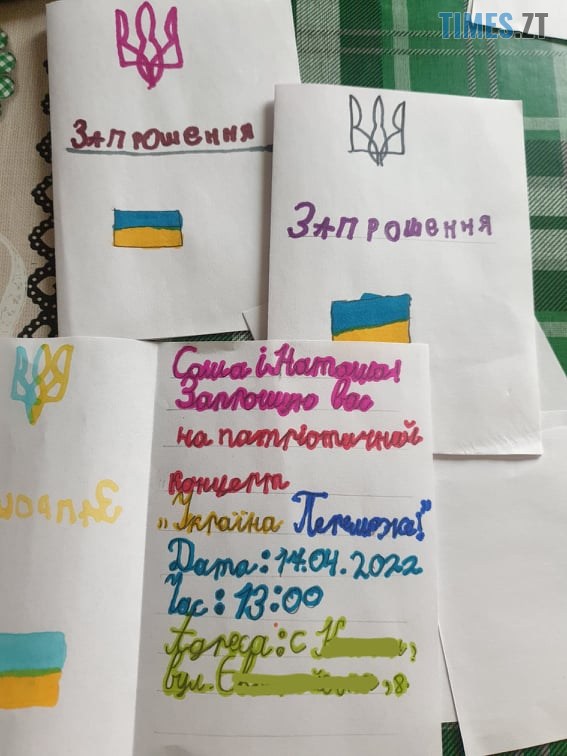 TIMES.ZT
Запрошення
Запрошення
Саша і Наташа!
Запрошую вас
на патріотичний
концерт
„Україна Переможе!"
Дата: 14.04.2022
Час: 13:00
Адреса: с
вул. Є , 8